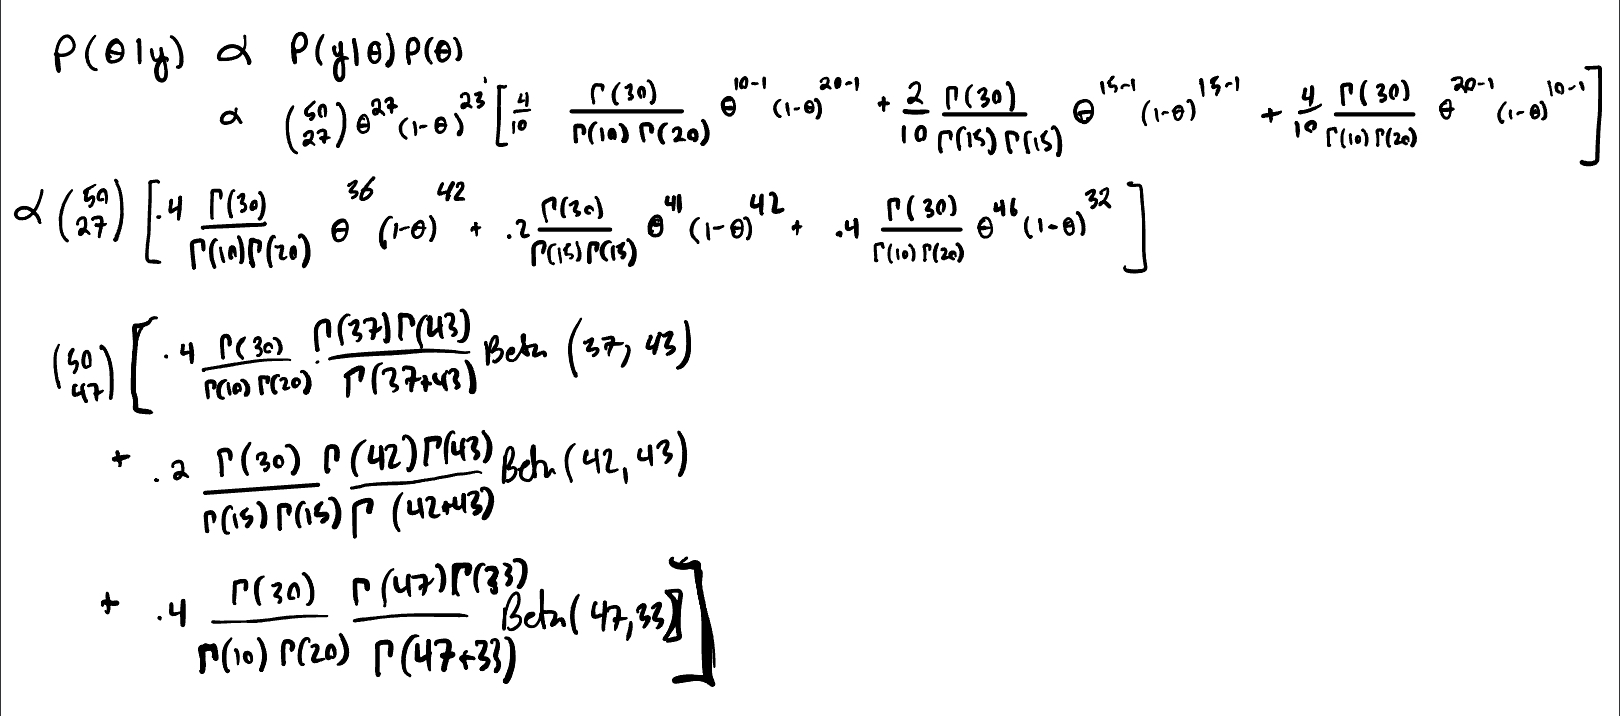 P(θ|y) ∝ P(y|θ) P(θ)
∝ (50 27) θ^27 (1-θ)^23 [ 4/10 Γ(30)/Γ(10)Γ(20) θ^10-1 (1-θ)^20-1 + 2/10 Γ(30)/Γ(15)Γ(15) θ^15-1 (1-θ)^15-1 + 4/10 Γ(30)/Γ(10)Γ(20) θ^20-1 (1-θ)^10-1 ]
∝ (50 27) [ .4 Γ(30)/Γ(10)Γ(20) θ^36 (1-θ)^42 + .2 Γ(30)/Γ(15)Γ(15) θ^41 (1-θ)^42 + .4 Γ(30)/Γ(10)Γ(20) θ^46 (1-θ)^32 ]
(50 47) [ .4 Γ(30)/Γ(10)Γ(20) · Γ(37)Γ(43)/Γ(37+43) Beta (37, 43)
+ .2 Γ(30)/Γ(15)Γ(15) Γ(42)Γ(43)/Γ(42+43) Beta (42, 43)
+ .4 Γ(30)/Γ(10)Γ(20) Γ(47)Γ(33)/Γ(47+33) Beta (47, 33) ]